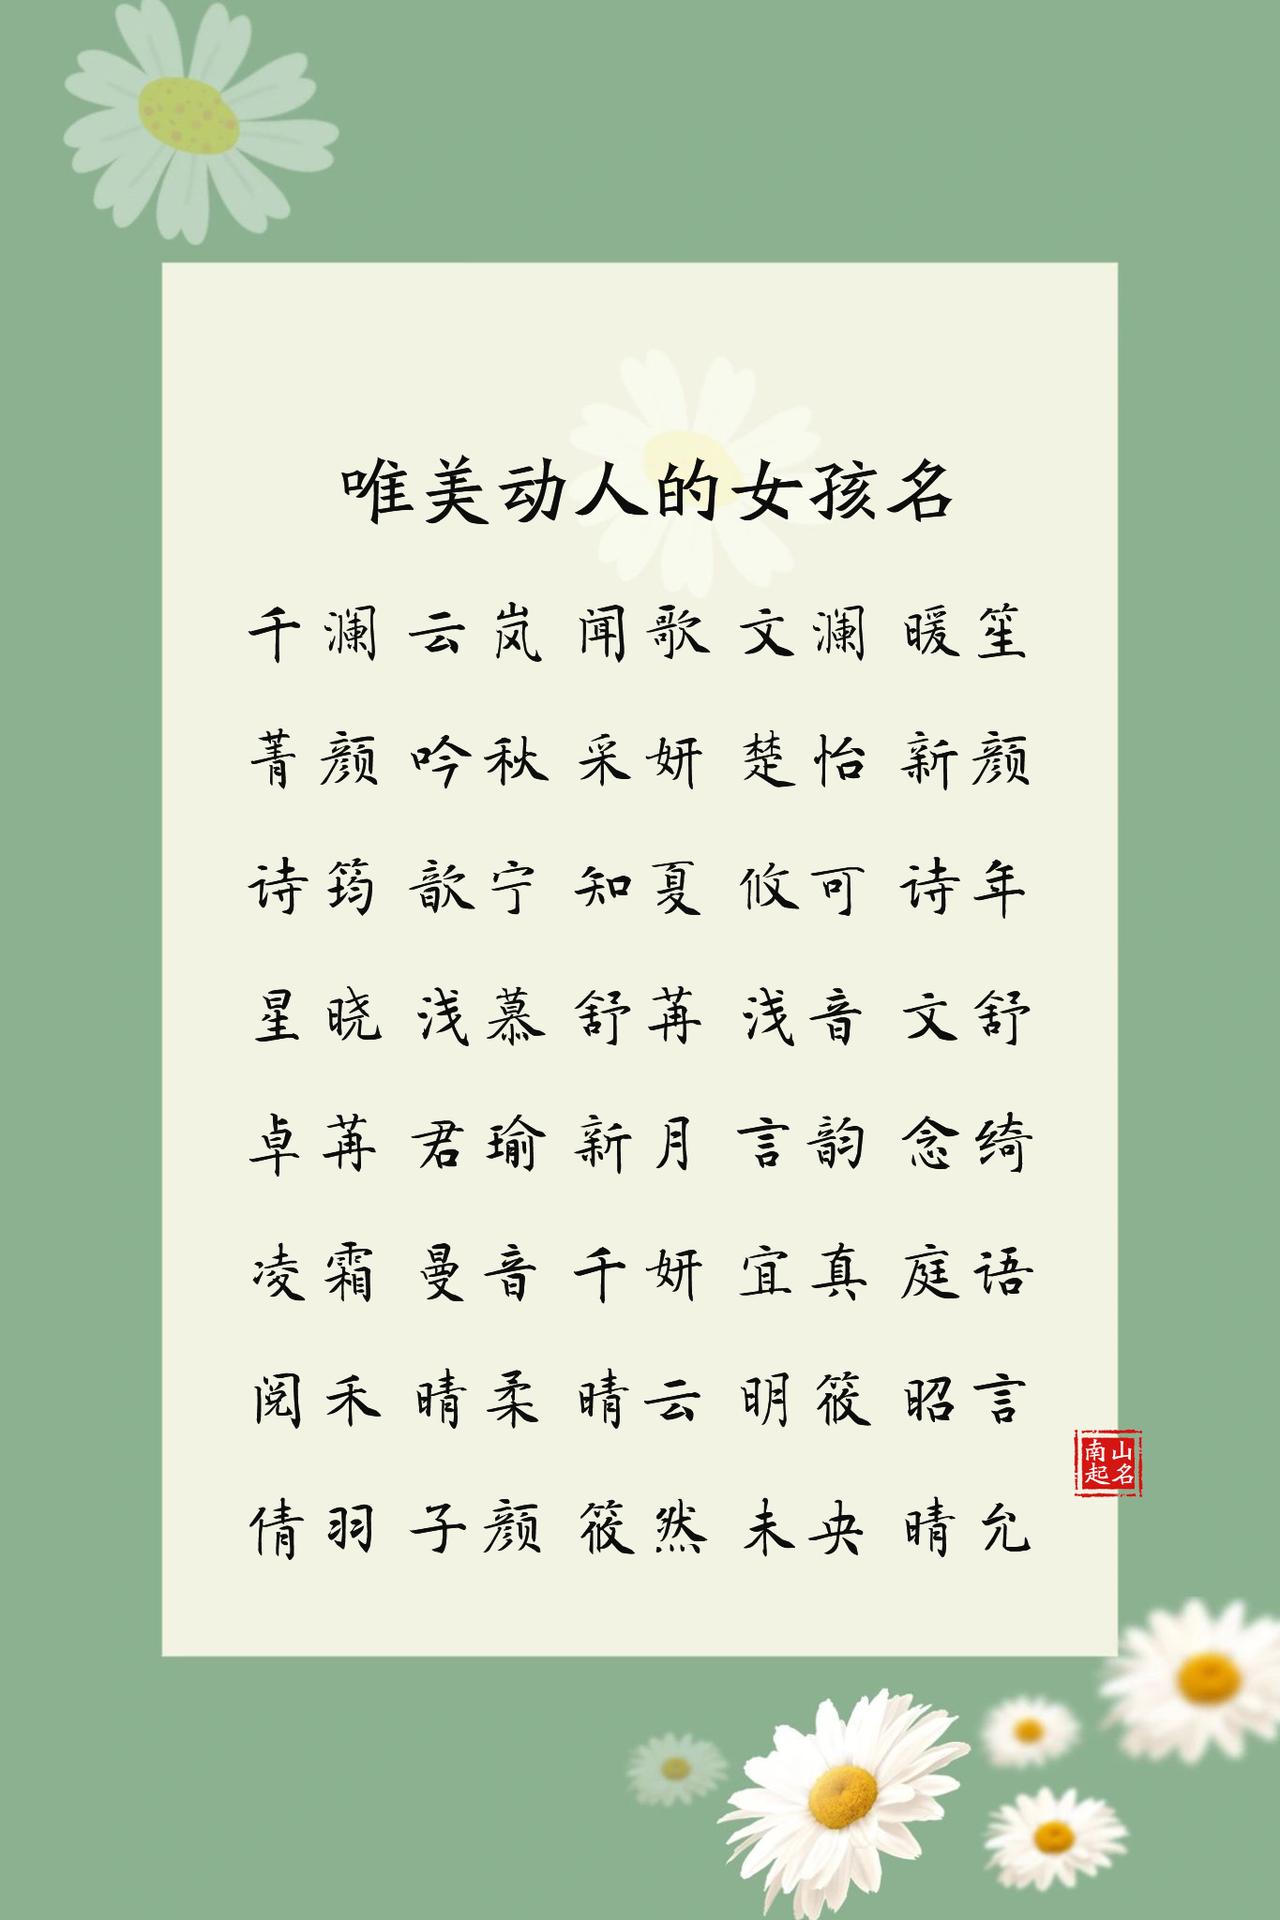 唯美动人的女孩名
千澜 云岚 闻歌 文澜 暖笙
菁颜 吟秋 采妍 楚怡 新颜
诗筠 歆宁 知夏 攸可 诗年
星晓 浅慕 舒苒 浅音 文舒
卓苒 君瑜 新月 言韵 念绮
凌霜 曼音 千妍 宜真 庭语
阅禾 晴柔 晴云 明筱 昭言
南山
起名
倩羽 子颜 筱然 未央 晴允